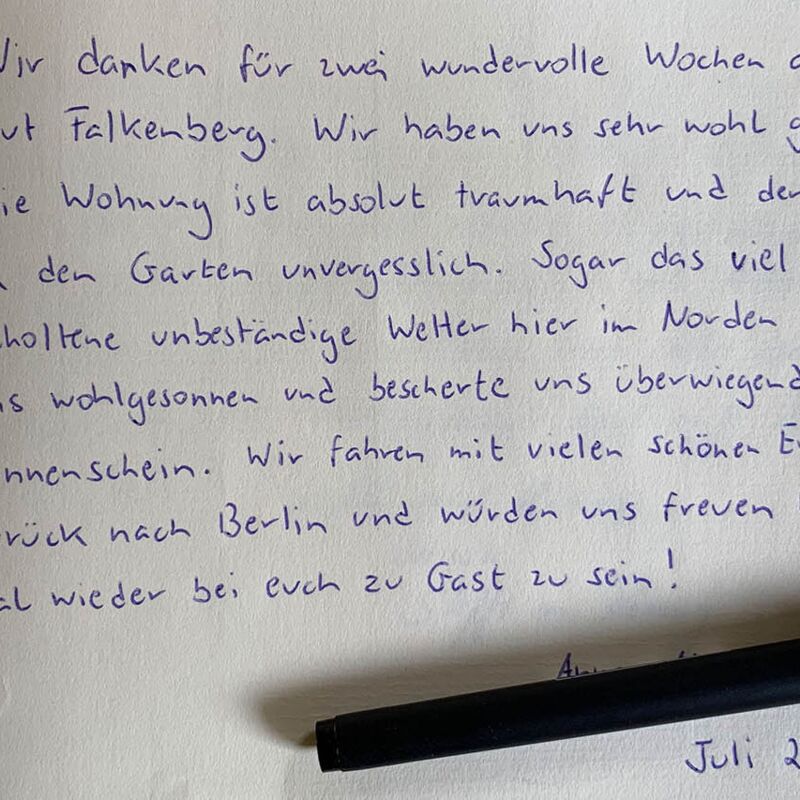 Wir danken für zwei wundervolle Wochen
Falkenberg. Wir haben uns sehr wohl
Wohnung ist absolut traumhaft und
den Garten unvergesslich. Sogar das viel
holtene unbeständige Wetter hier im Norden
wohlgesonnen und bescherte uns überwiegend
nnenschein. Wir fahren mit vielen schönen
rück nach Berlin und würden uns freuen
wieder bei euch zu Gast zu sein!
Juli